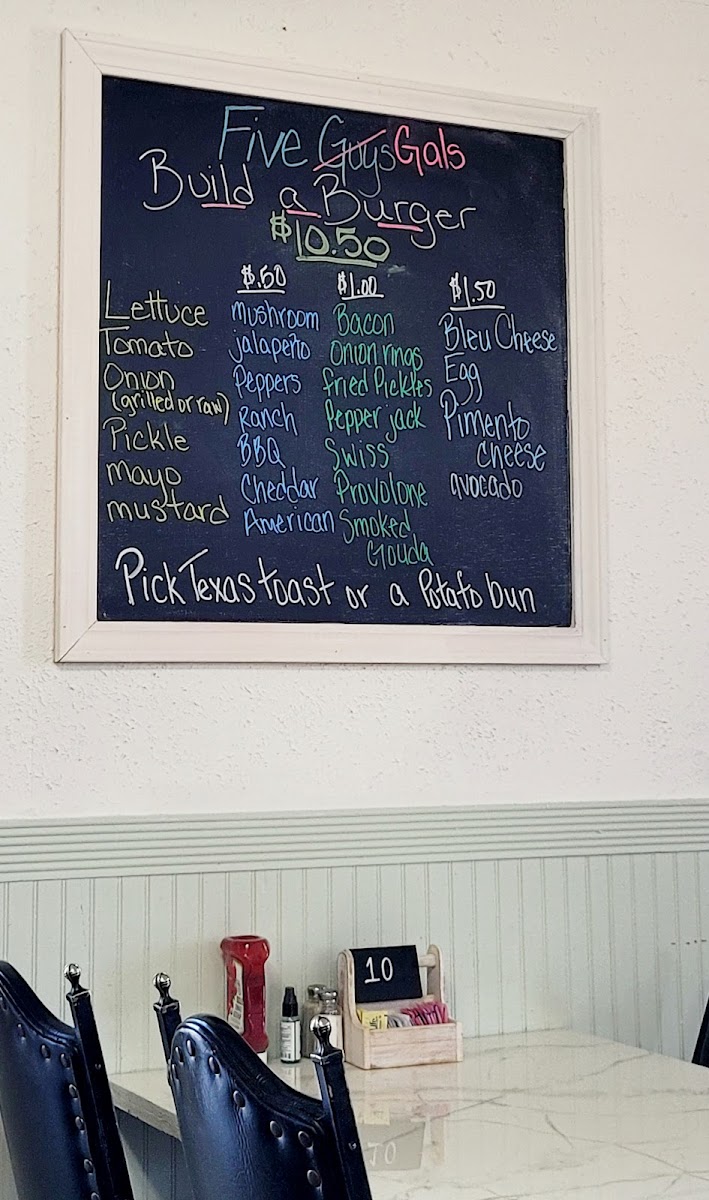 Five Guys Gals
Build a Burger
$10.50
Lettuce
Tomato
Onion
(grilled or raw)
Pickle
mayo
mustard
$.50
mushroom
jalapeño
Peppers
Ranch
BBQ
Cheddar
American
$1.00
Bacon
Onion rings
fried Pickles
Pepper jack
Swiss
Provolone
Smoked
Gouda
$1.50
Bleu Cheese
Egg
Pimento
cheese
avocado
Pick Texas toast or a Potato bun
10